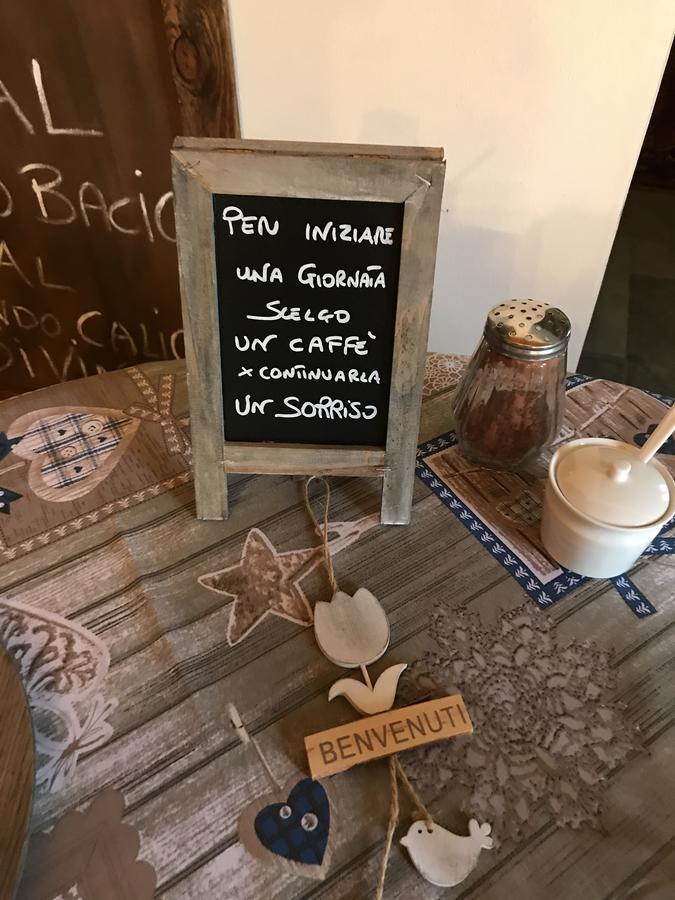 AL
BACIO
AL
NDO CALIC
DIVIN
PER INIZIARE
UNA GIORNATA
SCELGO
UN CAFFÈ
x CONTINUARLA
UN SORRISO
BENVENUTI